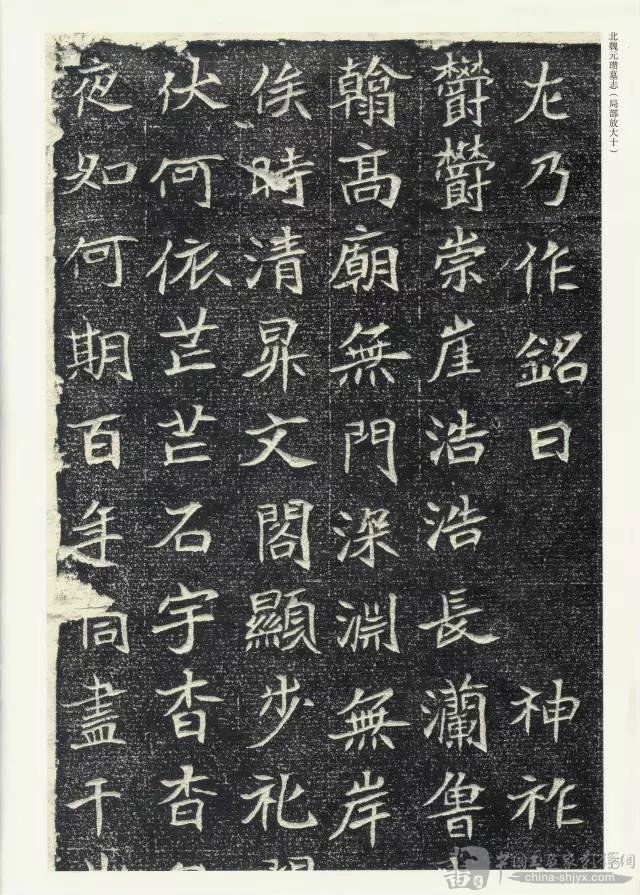 北魏元瓒墓志（局部放大十）
尢乃作銘曰 神祚
欝欝崇崖浩浩長瀾魯
翰高廟無門深淵無岸
俟時清昇文閣顯步礼
伏何依芒芒石宇杳杳
夜如何期百年同盡千
china-shjyx.com